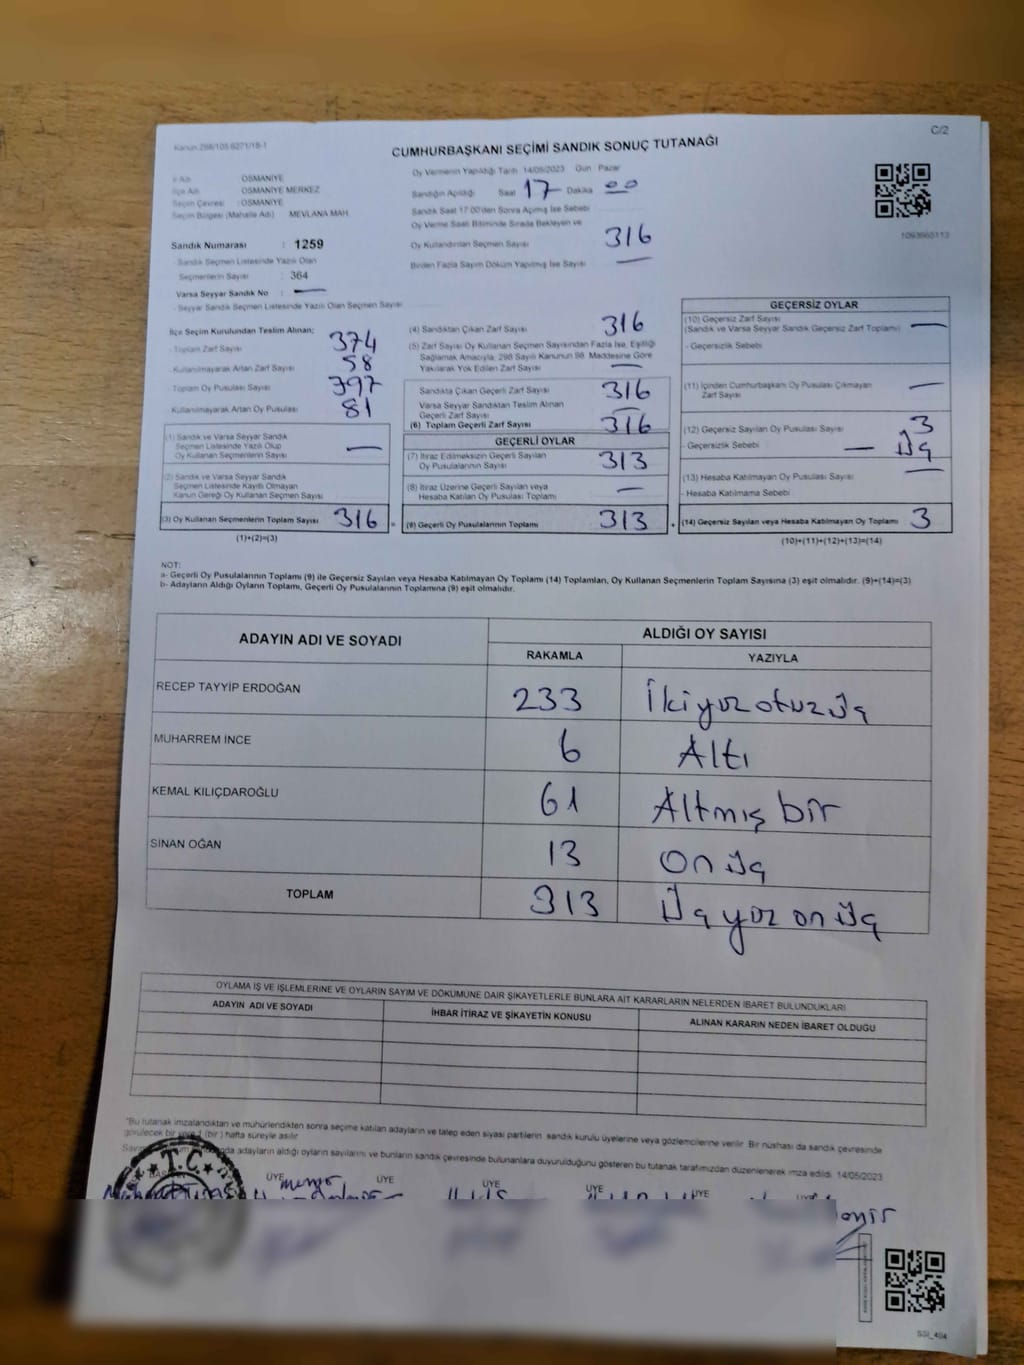 C/2
Kanun:298/105 6271/18-1
CUMHURBAŞKANI SEÇİMİ SANDIK SONUÇ TUTANAĞI
İl Adı : OSMANİYE
İlçe Adı : OSMANİYE MERKEZ
Seçim Çevresi : OSMANİYE
Seçim Bölgesi (Mahalle Adı) MEVLANA MAH.
Sandık Numarası : 1259
- Sandık Seçmen Listesinde Yazılı Olan
Seçmenlerin Sayısı : 364
Varsa Seyyar Sandık No : —
- Seyyar Sandık Seçmen Listesinde Yazılı Olan Seçmen Sayısı
Oy Vermenin Yapıldığı Tarih 14/05/2023 Gün Pazar
Sandığın Açıldığı Saat 17 Dakika 00
Sandık Saat 17:00'den Sonra Açılmış İse Sebebi
Oy Verme Saati Bitiminde Sırada Bekleyen ve
Oy Kullandırılan Seçmen Sayısı 316
Birden Fazla Sayım Döküm Yapılmış İse Sayısı —
1093665113
İlçe Seçim Kurulundan Teslim Alınan;
- Toplam Zarf Sayısı 374
- Kullanılmayarak Artan Zarf Sayısı 58
Toplam Oy Pusulası Sayısı 397
Kullanılmayarak Artan Oy Pusulası 81
(1) Sandık ve Varsa Seyyar Sandık
Seçmen Listesinde Yazılı Olup
Oy Kullanan Seçmenlerin Sayısı —
(2) Sandık ve Varsa Seyyar Sandık
Seçmen Listesinde Kayıtlı Olmayan
Kanun Gereği Oy Kullanan Seçmen Sayısı
(3) Oy Kullanan Seçmenlerin Toplam Sayısı 316 =
(1)+(2)=(3)
(4) Sandıktan Çıkan Zarf Sayısı 316
(5) Zarf Sayısı Oy Kullanan Seçmen Sayısından Fazla İse, Eşitliği
Sağlamak Amacıyla, 298 Sayılı Kanunun 98. Maddesine Göre
Yakılarak Yok Edilen Zarf Sayısı —
Sandıkta Çıkan Geçerli Zarf Sayısı 316
Varsa Seyyar Sandıktan Teslim Alınan
Geçerli Zarf Sayısı —
(6) Toplam Geçerli Zarf Sayısı 316
GEÇERLİ OYLAR
(7) İtiraz Edilmeksizin Geçerli Sayılan
Oy Pusulalarının Sayısı 313
(8) İtiraz Üzerine Geçerli Sayılan veya
Hesaba Katılan Oy Pusulası Toplamı —
(9) Geçerli Oy Pusulalarının Toplamı 313 +
GEÇERSİZ OYLAR
(10) Geçersiz Zarf Sayısı
(Sandık ve Varsa Seyyar Sandık Geçersiz Zarf Toplamı) —
- Geçersizlik Sebebi
(11) İçinden Cumhurbaşkanı Oy Pusulası Çıkmayan
Zarf Sayısı —
(12) Geçersiz Sayılan Oy Pusulası Sayısı 3
- Geçersizlik Sebebi — Üç
(13) Hesaba Katılmayan Oy Pusulası Sayısı —
- Hesaba Katılmama Sebebi
(14) Geçersiz Sayılan veya Hesaba Katılmayan Oy Toplamı 3
(10)+(11)+(12)+(13)=(14)
NOT:
a- Geçerli Oy Pusulalarının Toplamı (9) ile Geçersiz Sayılan veya Hesaba Katılmayan Oy Toplamı (14) Toplamları, Oy Kullanan Seçmenlerin Toplam Sayısına (3) eşit olmalıdır. (9)+(14)=(3)
b- Adayların Aldığı Oyların Toplamı, Geçerli Oy Pusulalarının Toplamına (9) eşit olmalıdır.
ADAYIN ADI VE SOYADI ALDIĞI OY SAYISI
RAKAMLA YAZIYLA
RECEP TAYYİP ERDOĞAN 233 İkiyüzotuzüç
MUHARREM İNCE 6 Altı
KEMAL KILIÇDAROĞLU 61 Altmış bir
SİNAN OĞAN 13 On üç
TOPLAM 313 Üç yüz on üç
OYLAMA İŞ VE İŞLEMLERİNE VE OYLARIN SAYIM VE DÖKÜMÜNE DAİR ŞİKAYETLERLE BUNLARA AİT KARARLARIN NELERDEN İBARET BULUNDUKLARI
ADAYIN ADI VE SOYADI İHBAR İTİRAZ VE ŞİKAYETİN KONUSU ALINAN KARARIN NEDEN İBARET OLDUĞU
*Bu tutanak imzalandıktan ve mühürlendikten sonra seçime katılan adayların ve talep eden siyasi partilerin sandık kurulu üyelerine veya gözlemcilerine verilir. Bir nüshası da sandık çevresinde
görülecek bir yere 1 (bir) hafta süreyle asılır
adayların aldığı oyların sayılarını ve bunların sandık çevresinde bulunanlara duyurulduğunu gösteren bu tutanak tarafımızdan düzenlenerek imza edildi. 14/05/2023
T.C.
ÜYE ÜYE ÜYE ÜYE ÜYE
SSI_404